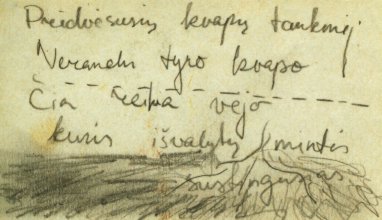 Pridvėsusių kvapų tankmėj
Nerandu tyro kvapo
Čia reikia vėjo
kuris išvalytų mintis
sustingusias